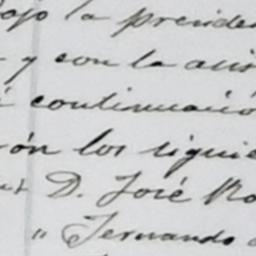 bajo la presiden
y con la asis
continuació
ón los siguie
D. José Ro
" Fernando